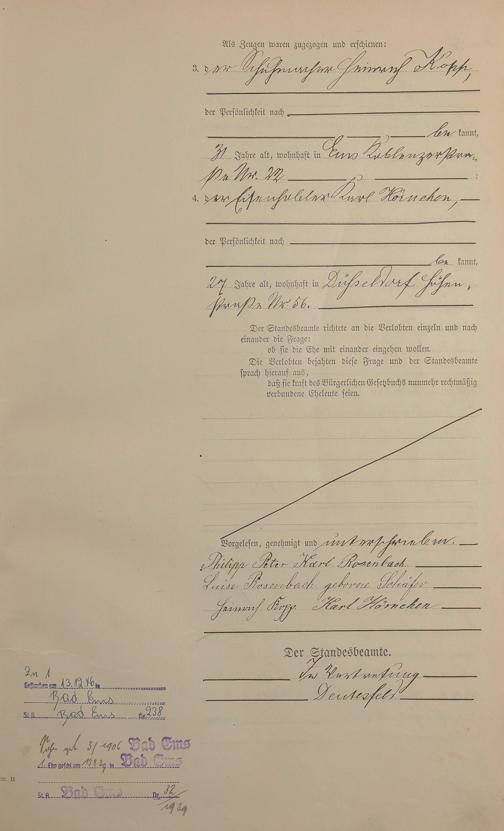 Als Zeugen waren zugezogen und erschienen:
3. der Schuhmacher Heinrich Kopp,
der Persönlichkeit nach
be kannt,
31 Jahre alt, wohnhaft in Ems Koblenzerstra-
ße Nr. 22
4. der Eisenhobler Karl Hörnchen,
der Persönlichkeit nach
be kannt,
27 Jahre alt, wohnhaft in Düsseldorf Höhen-
straße Nr. 56.
Der Standesbeamte richtete an die Verlobten einzeln und nach
einander die Frage:
ob sie die Ehe mit einander eingehen wollen.
Die Verlobten bejahten diese Frage und der Standesbeamte
sprach hierauf aus,
daß sie kraft des Bürgerlichen Gesetzbuchs nunmehr rechtmäßig
verbundene Eheleute seien.
Vorgelesen, genehmigt und unterschrieben.
Philipp Peter Karl Rosenbach
Luise Rosenbach geborene Schäfer
Heinrich Kopp Karl Hörnchen
Der Standesbeamte.
In Vertretung
Deutesfeld
Zu 1
Gestorben am 13.12.46 in
Bad Ems
St. A. Bad Ems Nr. 238
3/1906 Bad Ems
1. Ehe geschl. am in Bad Ems
St. A. Bad Ems Nr. 32/
1929